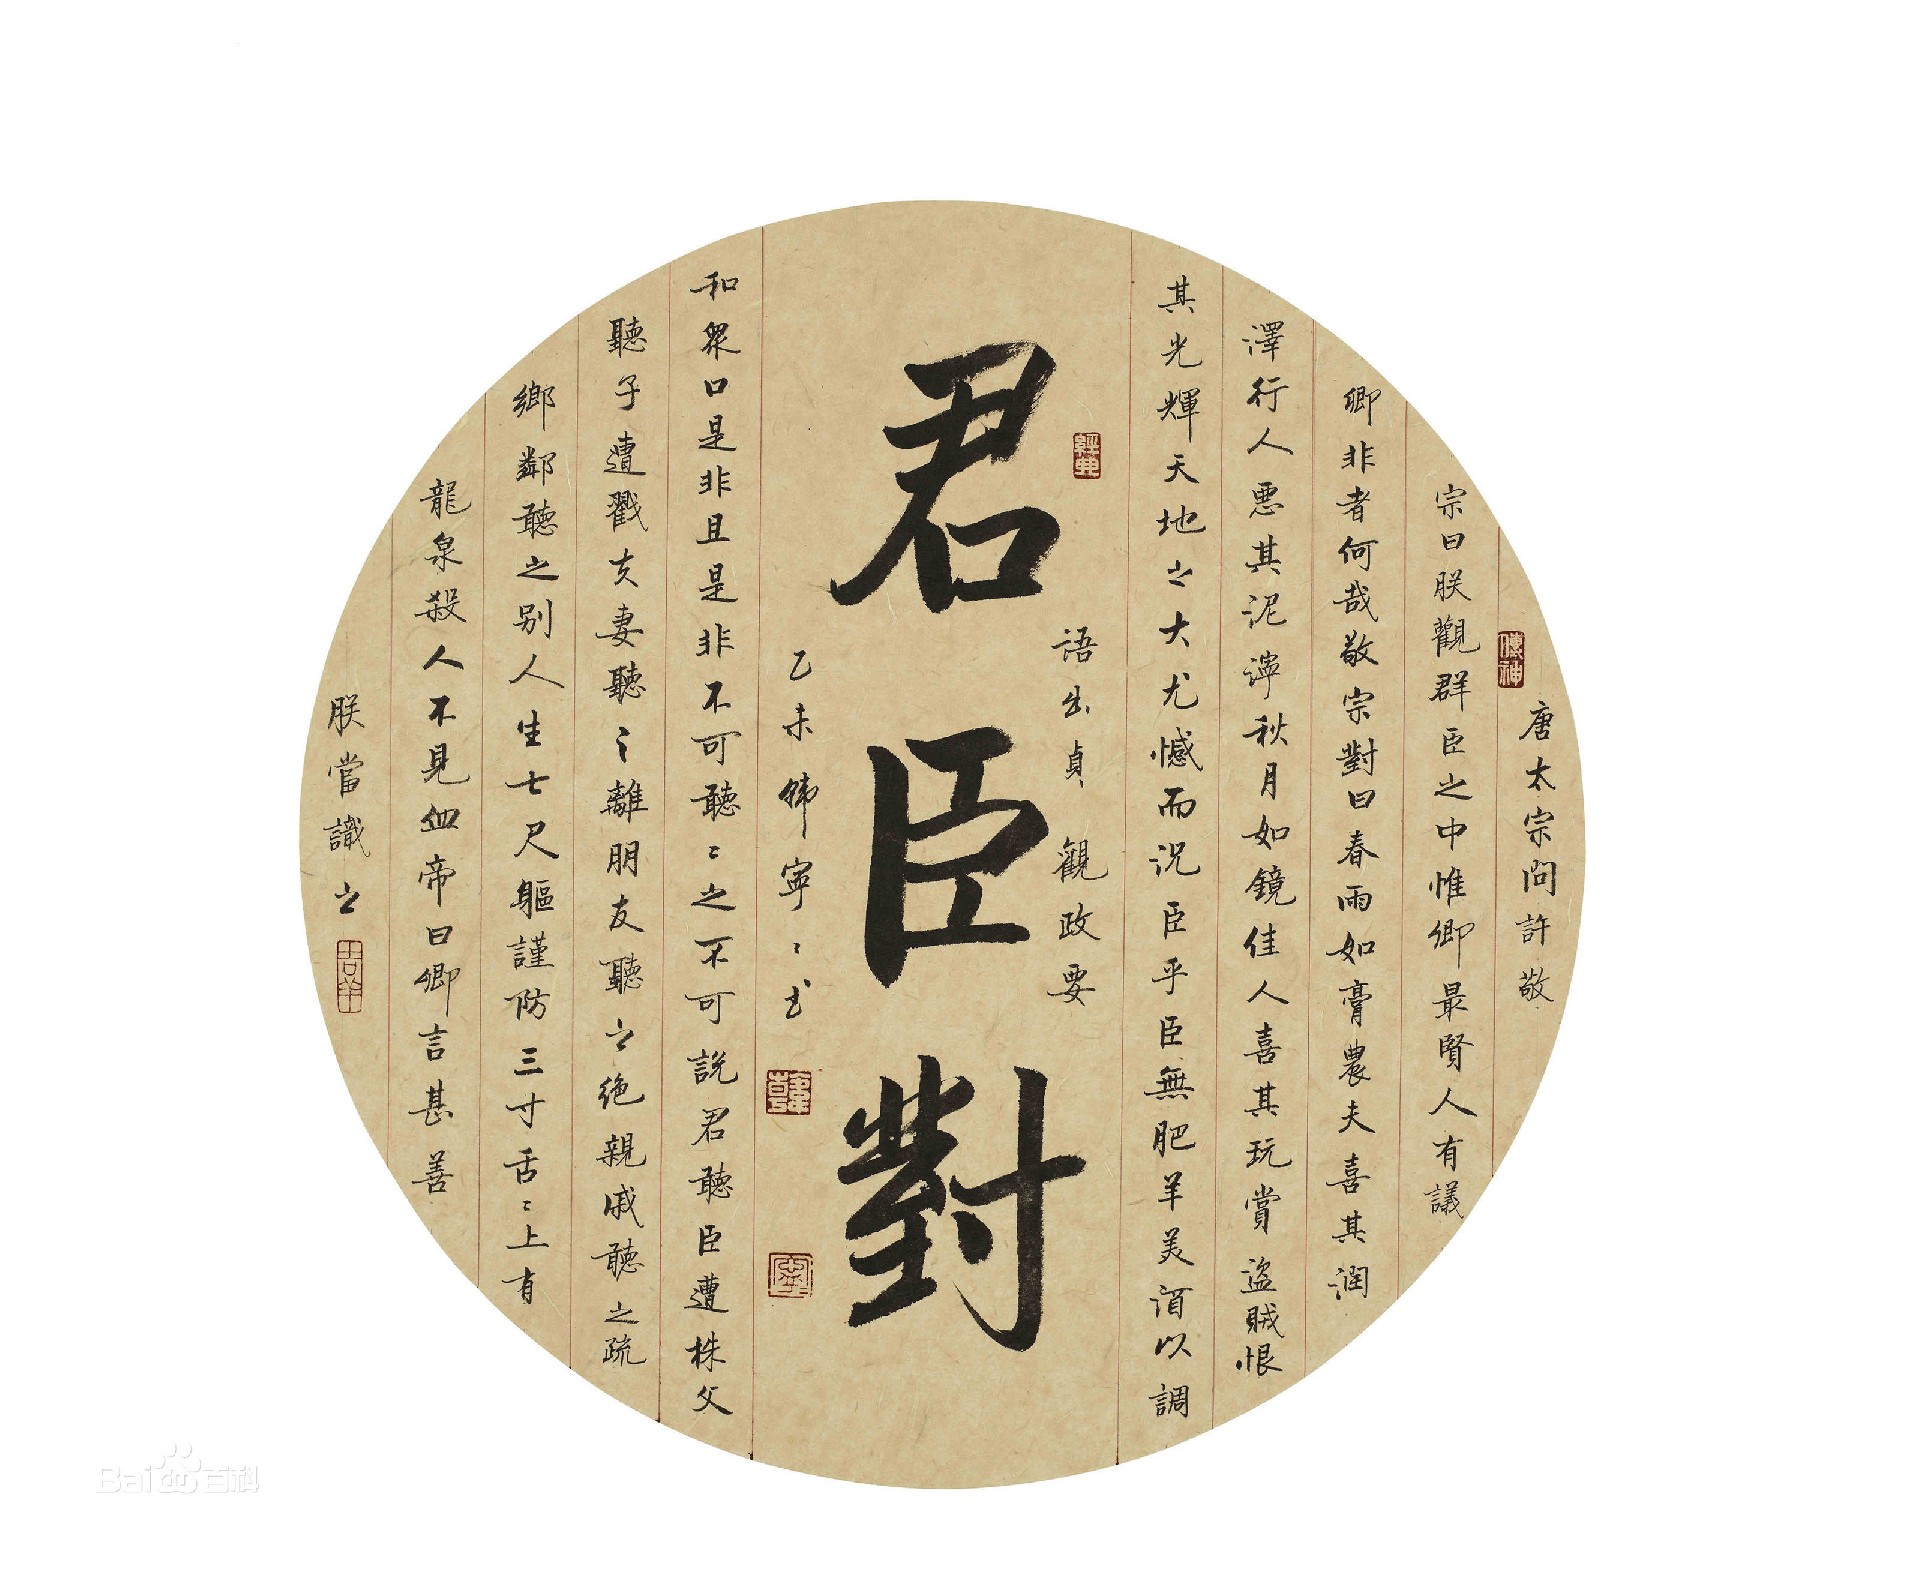 唐太宗問許敬
宗曰朕觀群臣之中惟卿最賢人有議
卿非者何哉敬宗對曰春雨如膏農夫喜其潤
澤行人悪其泥濘秋月如鏡佳人喜其玩賞盜賊恨
其光輝天地之大尤憾而況臣乎臣無肥羊美酒以調
語出貞觀政要
君臣對
乙未韩寧寧书
和眾口是非且是非不可聽聽之不可說君聽臣遭株父
聽子遭戳夫妻聽之離朋友聽之绝親戚聽之疏
鄉鄰聽之别人生七尺軀謹防三寸舌舌上有
龍泉殺人不見血帝曰卿言甚善
朕當識之
Bai百科